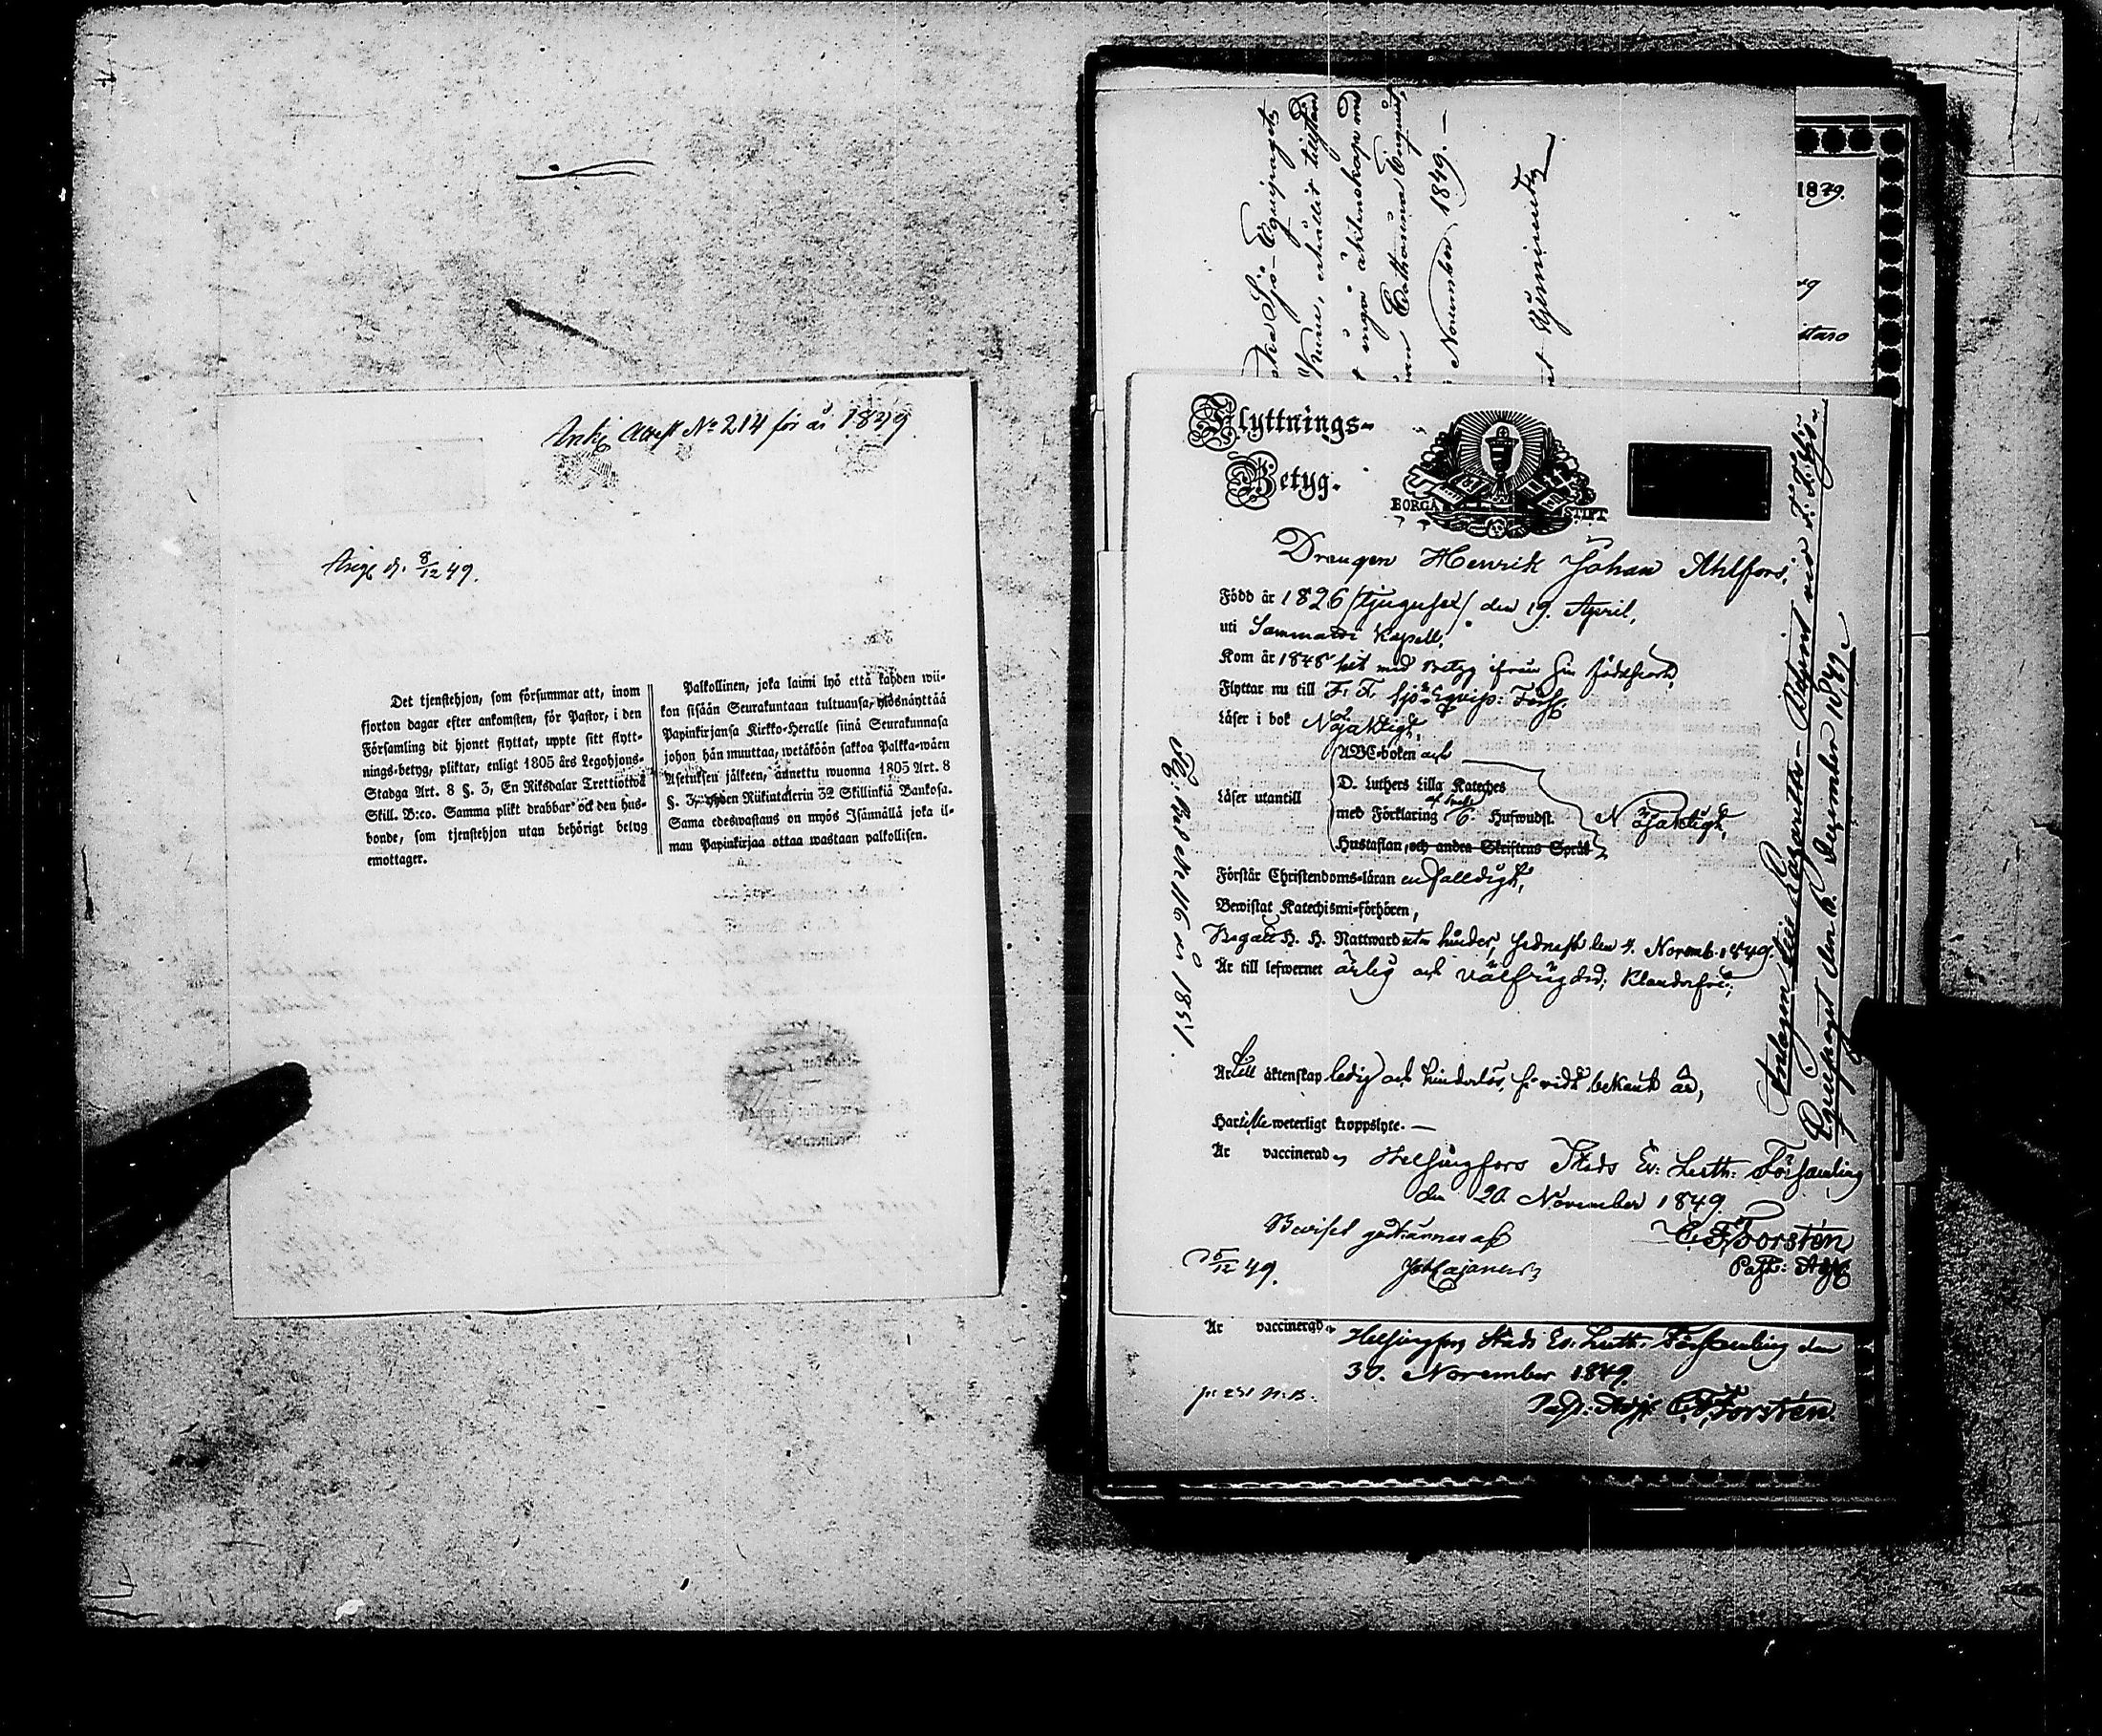 Ank: Attest No 214 för år 1849
d. 8/12 49.
Det tjenstehjon, som försummar att, inom
fjorton dagar efter ankomsten, för Pastor, i den
Församling dit hjonet flyttat, uppte sitt flytt-
nings-betyg, pliktar, enligt 1805 års Legohjons-
Stadga Art. 8 §. 3, En Riksdalar Trettiotwå
Skill. B:co. Samma plikt drabbar ock den hus-
bonde, som tjenstehjon utan behörigt betyg
emottager.
Palkollinen, joka laimi lyö että kahden wii-
kon sisään Seurakuntaan tultuansa, ylösnäyttää
Papinkirjansa Kirkko-Herralle siinä Seurakunnasa
johon hän muuttaa, wetäköön sakkoa Palkka-wäen
Asetuksen jälkeen, annettu wuonna 1805 Art. 8
§. 3, yhden Riikintalerin 32 Skillinkiä Bankosa.
Sama edeswastaus on myös Isännällä joka il-
man Papinkirjaa ottaa wastaan palkollisen.
Sjö-Equipagets
erhållit tillstånd
ingå äktenskap med
Catharina
November 1849.
1879.
Flyttnings-
Betyg.
BORGÅ STIFT
Drengen Henrik Johan Ahlfors,
Född år 1826 /tjugusex/ den 19. April,
uti Sammatti Kapell,
Kom år 1848 hit med betyg ifrån sin födelseort,
Flyttar nu till F. F. Sjö-Equip: Förs:
Läser i bok Nöjaktigt,
ABC-boken och
D. Luthers Lilla Kateches
Läser utantill
med Förklaring af Hufwudst.
Nöjaktigt,
Hustaflan, och andra Skriftens Språk
Förstår Christendoms-läran enfalldigt,
Bewistat Katechismi-förhören,
Begått H. H. Nattward utan hinder, sednast den 4. Novemb. 1849.
Är till lefwernet ärlig och välfrägdad, klanderfri;
Är till äktenskap ledig och hinderlös, så vidt bekant är,
Har icke weterligt kroppslyte. —
Är vaccinerad, Helsingfors Stads Ev: Luth: Församling
den 20. November 1849.
C. F. Forstén
Beviset godkännes af
5/12 49.
Past: Adj:
år 1851.
Antagen till Lazaretts-Betjent vid F. F. Sjö-
Equipaget den 6. December 1849.
Är vaccinerad, Helsingfors Stads Ev. Luth. Församling den
30. November 1849.
p: 231 N: B.
Past: Adj: C. F. Forstén.